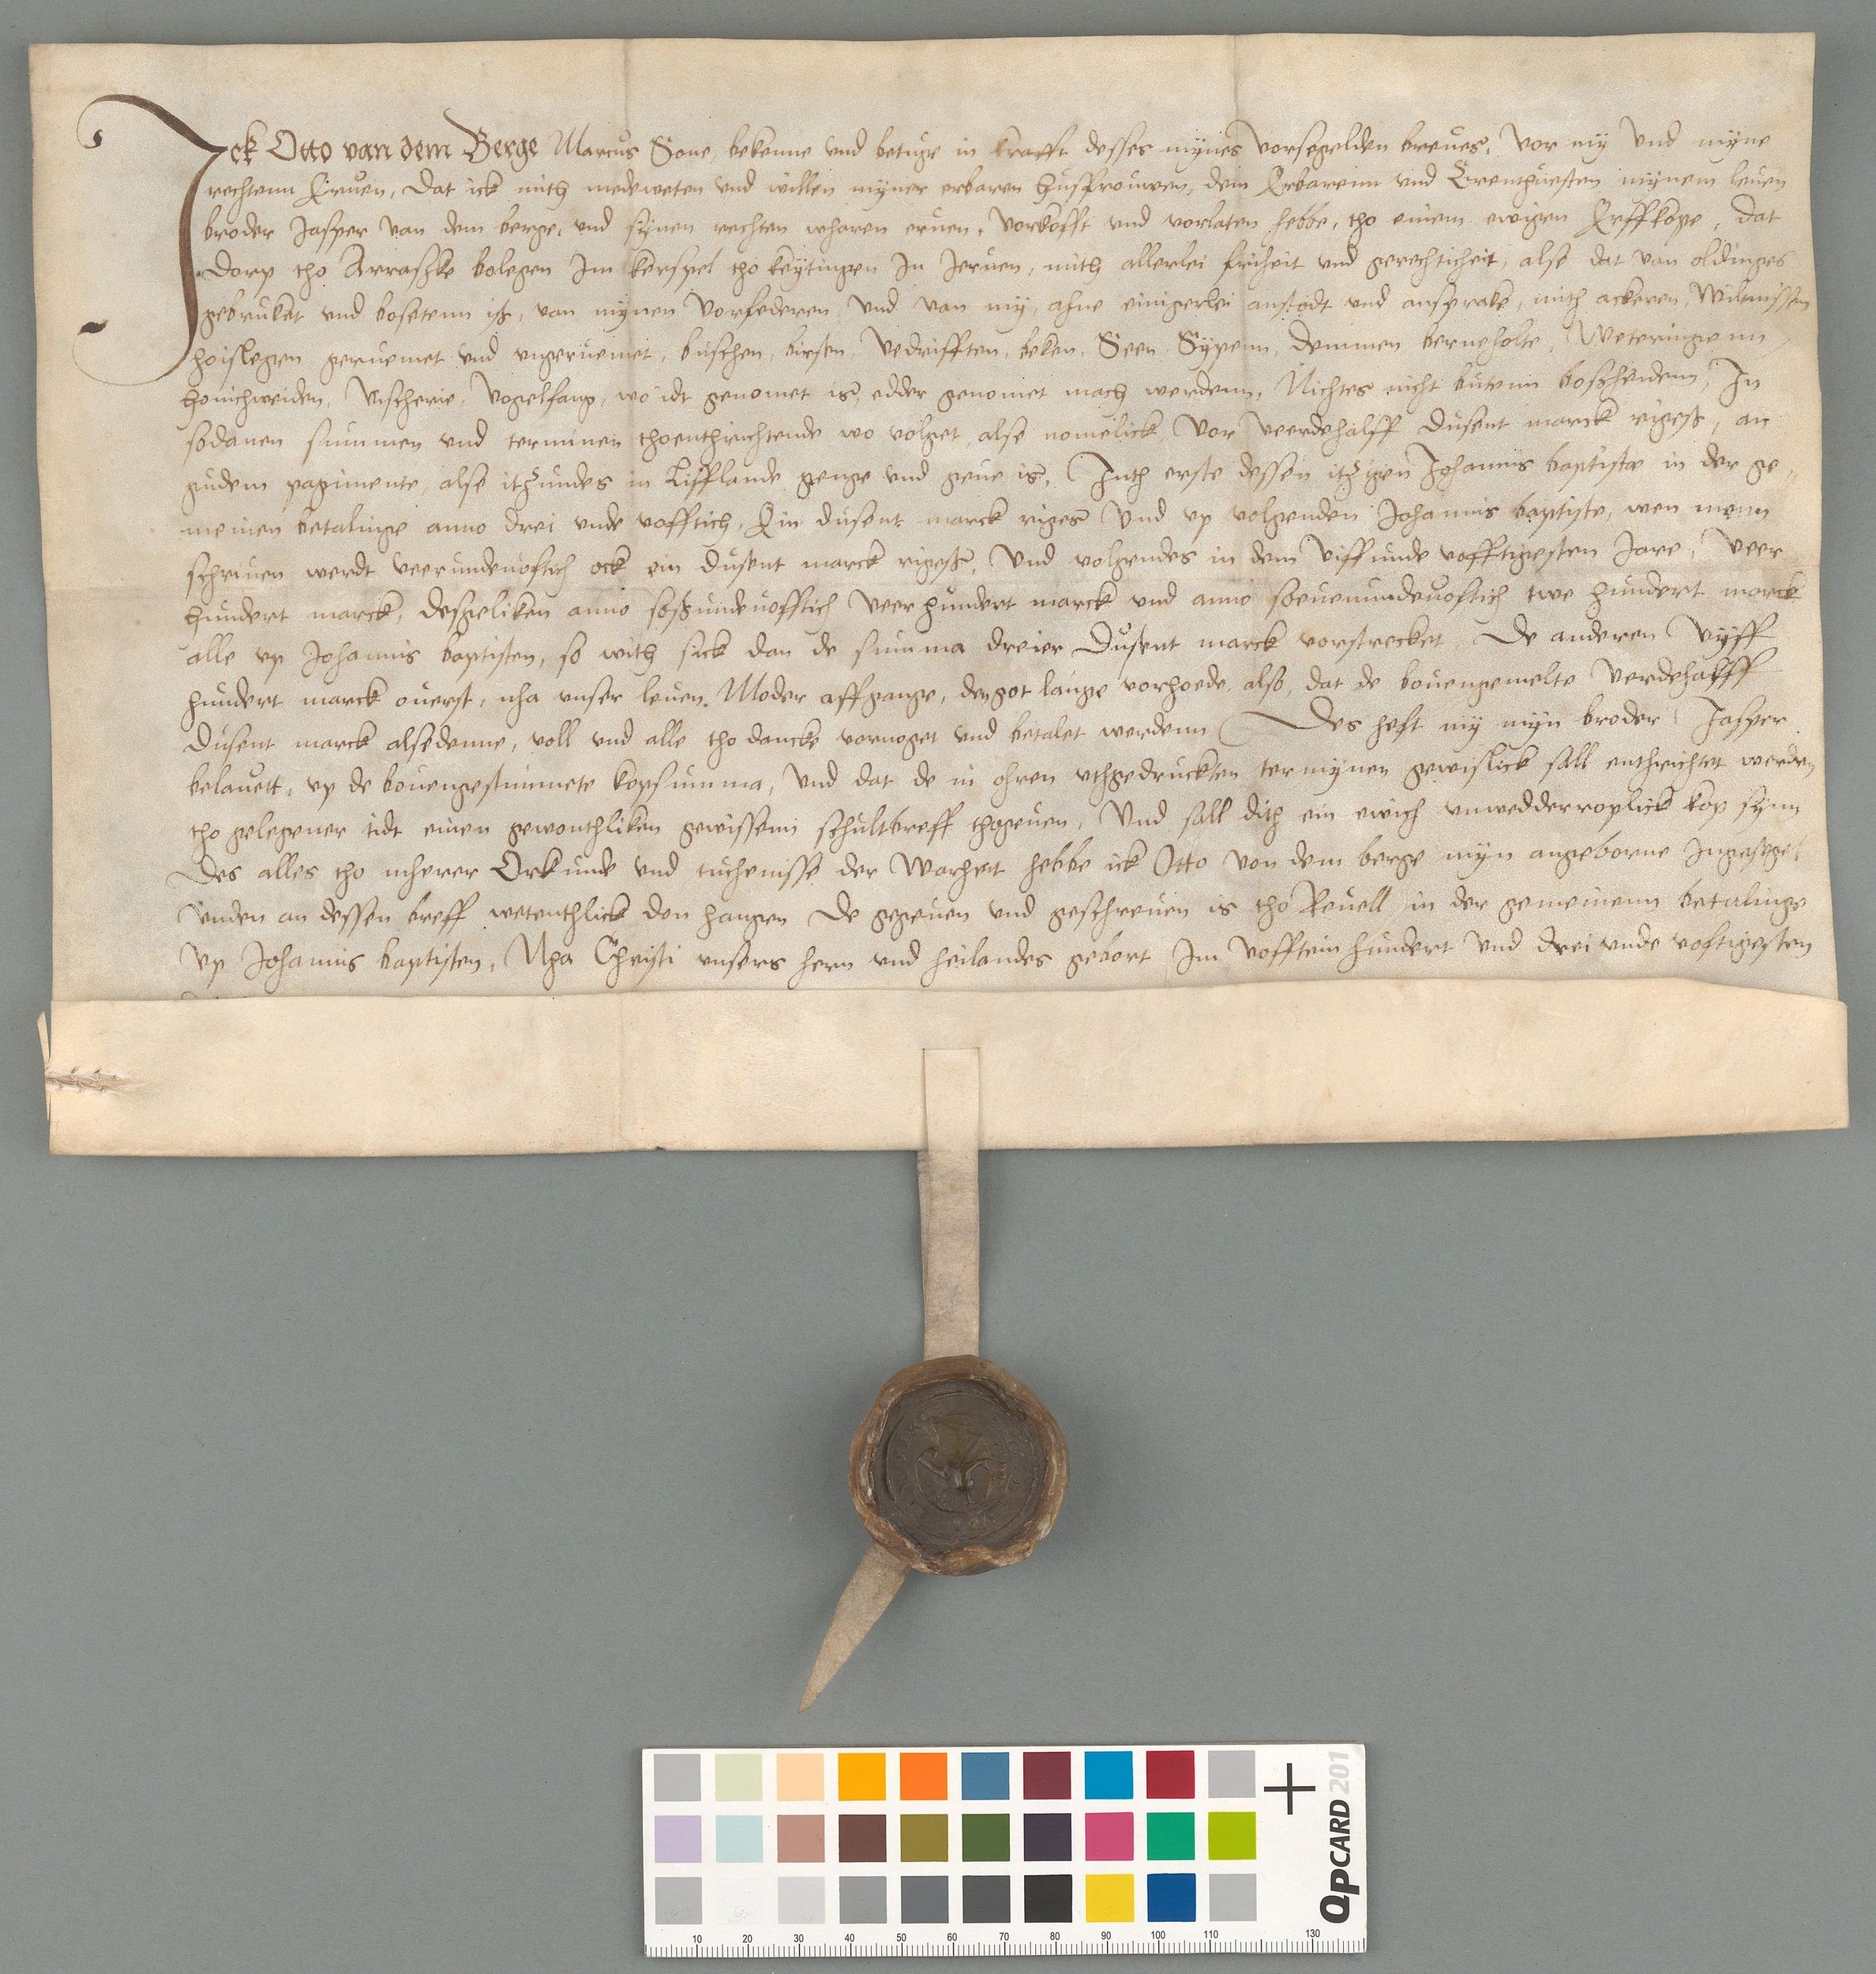 Jck Otto van dem Berge Marcus Sone, bekenne vnd betuge in krafft desses mynes vorsegelden breues, Vor my Vnd myne
rechtenn Eruen, Dat ick mith medeweten vnd willen myner erbaren Husfrouwen, dem Erbarenn vnd Erenthuesten mynem leuen
broder Jasper van dem berge, vnd synen rechten wharen eruen, Vorkofft vnd vorlaten hebbe, tho einem ewigen Erffkope, dat
Dorp tho Arraschke belegen Jm kerspel tho keytingen Jn Jeruen, mith allerlei friheit vnd gerechticheit, alse dat van oldinges
gebruket vnd besetenn iß, van mynen Vorfederen, Vnd van my, ahne einigerlei anstodt vnd ansprake, mith ackeren, Wiltnissen
hoislegen geruemet vnd vngeruemet, buschen, birsen, Vedrifften, beken, Seen, Sypenn, Demmen berneholte, Weteringenn
Honichweiden, Vischerie, Vogelfang, wo idt genomet is, edder genomet mach werdenn, Nichtes nicht butenn boschedenn, Jn
sodanen summen vnd terminen thoenthrichtende wo volget, alse nomelick, Vor veerdehalff Dusent marck rigesß, an
gudem pagimente, alse itzundes in Lifflande genge vnd geue is, Jnth erste dessen itzigen Johannis baptistæ in der ge-,
meinen betalinge anno drei vnde vofftich, Ein dusent marck riges Vnd vp volgenden Johannis baptiste, wen menn
schriuen werdt veerundeuoftich ock ein dusent marck rigesß, Vnd volgendes in dem Viffunde vofftigesten Jare, Veer
hundert marck, desgeliken anno soßundeuofftich Veer hundert marck vnd anno soeuenundeuoftich twe hundert marck
alle vp Johannis baptisten, so with sick dan de summa dreier Dusent marck vorstrecket De anderen Vyff
hundert marck ouerst, nha vnser leuen Moder affgange, den got lange vorhoede, also, dat de bouengemelte Verdehalff
Dusent marck alsedenne, voll vnd alle tho dancke vornoget vnd betalet werdenn Des heft my myn broder Jasper
belauett, vp de bouengestimmete kopsumma, Vnd dat de in ohren vthgedruckten termynen gewislick sall enthrichtet werden
tho gelegener tidt einen gewonthliken gewissenn schultbreff thogeuen, Vnd sall dith ein ewich vnwedderroplick kop synn
Des alles tho mherer Orkunde vnd tuchenisse der Warheit hebbe ick Otto von dem berge myn angeborne Jngesegel
Vnden an dessen breff wetenthlick don hangen De gegeuen vnd geschreuen is tho Reuell in der gemeinenn betalinge
Vp Johannis baptisten, Nha Christi vnsers hern vnd heilandes gebort Jm vofftein hundert Vnd drei vnde voftigesten
QPCARD 201
10 20 30 40 50 60 70 80 90 100 110 130